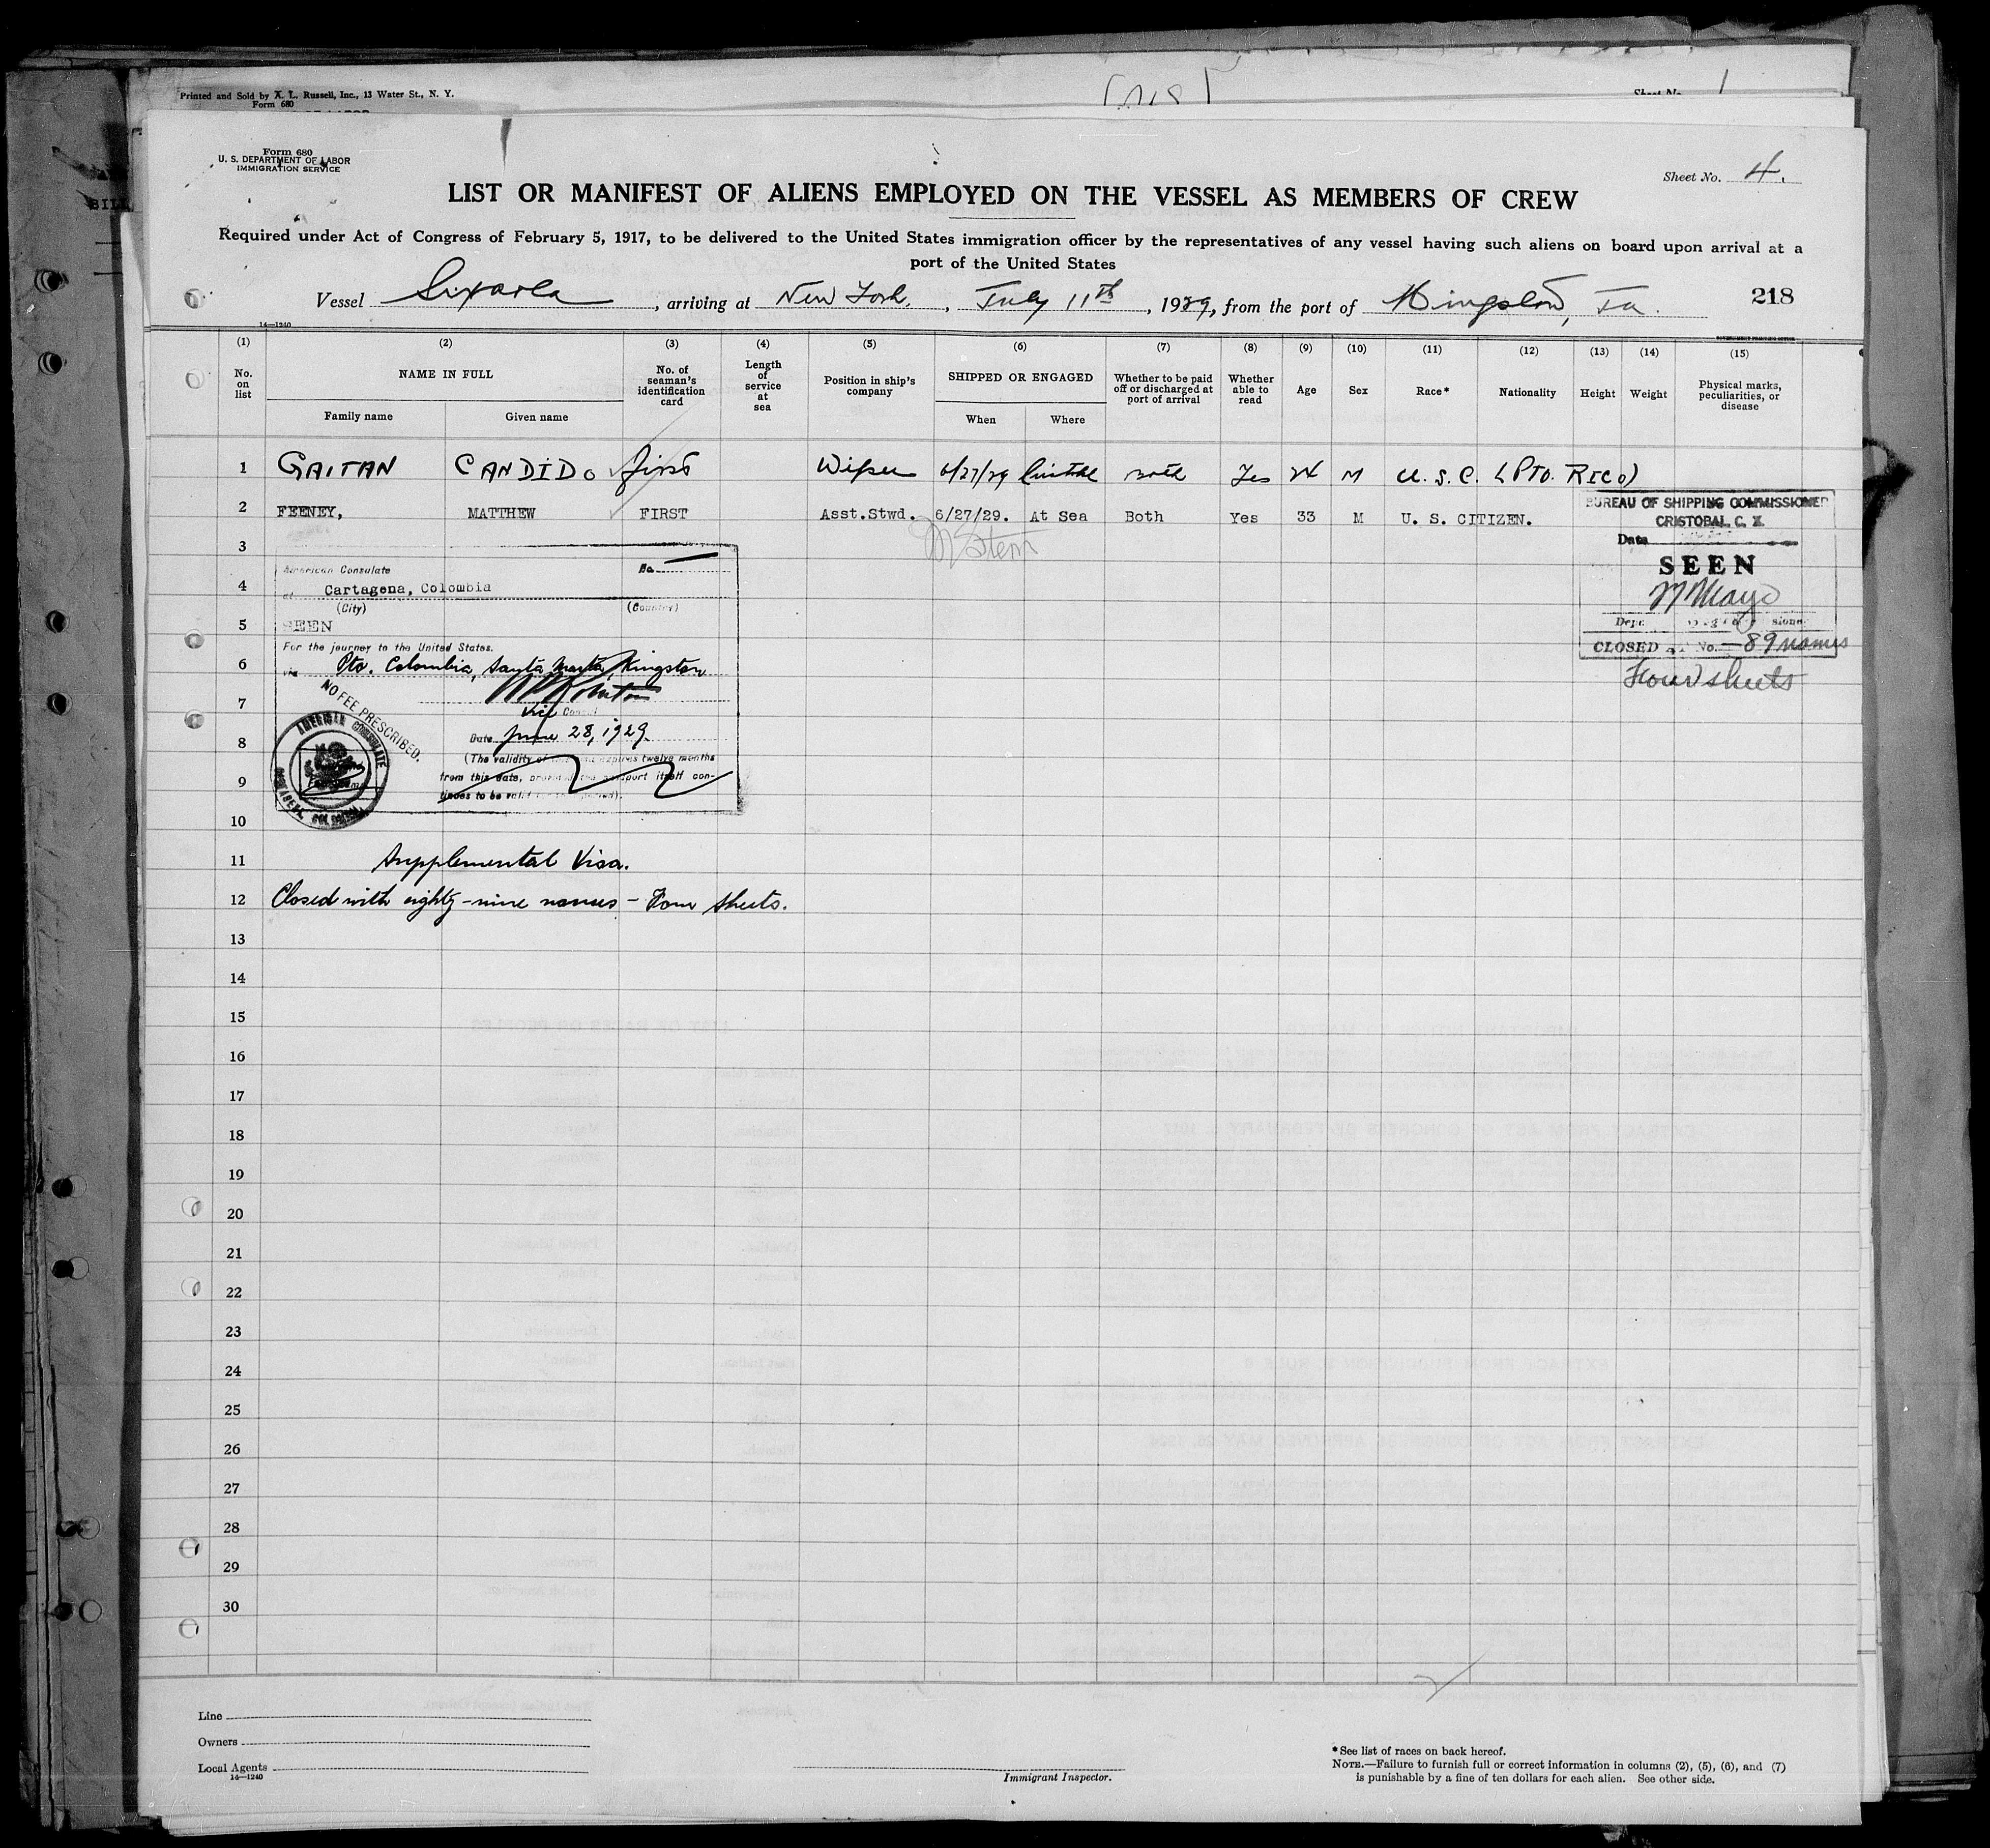 Printed and Sold by X. L. Russell, Inc., 13 Water St., N. Y.
Form 680
Sheet No. 1
Form 680
U. S. DEPARTMENT OF LABOR
IMMIGRATION SERVICE
Sheet No. 4.
LIST OR MANIFEST OF ALIENS EMPLOYED ON THE VESSEL AS MEMBERS OF CREW
Required under Act of Congress of February 5, 1917, to be delivered to the United States immigration officer by the representatives of any vessel having such aliens on board upon arrival at a
port of the United States
Vessel Sixaola, arriving at New York, July 11th, 1929, from the port of Kingston, Ja. 218
14—1240
(1) (2) (3) (4) (5) (6) (7) (8) (9) (10) (11) (12) (13) (14) (15)
No. on list
NAME IN FULL
Family name Given name
No. of seaman's identification card
Length of service at sea
Position in ship's company
SHIPPED OR ENGAGED
When Where
Whether to be paid off or discharged at port of arrival
Whether able to read
Age Sex Race* Nationality Height Weight
Physical marks, peculiarities, or disease
1 GAITAN CANDIDO first Wiper 6/27/29 Both Yes 24 M U.S.C. (PTO. RICO)
2 FEENEY, MATTHEW FIRST Asst.Stwd. 6/27/29. At Sea Both Yes 33 M U. S. CITIZEN.
BUREAU OF SHIPPING COMMISSIONER
CRISTOBAL, C. Z.
Date
SEEN
CLOSED No. 89 names
Four sheets
3
American Consulate No.
4
at Cartagena, Colombia
(City) (Country)
5
SEEN
For the journey to the United States.
6
via Pto. Colombia, Santa Marta, Kingston
NO FEE PRESCRIBED.
7
Vice Consul
8
Date June 28, 1929.
AMERICAN CONSULATE
CARTAGENA, COLOMBIA
(The validity of expires twelve months
9
from this date, provided the passport itself con-
tinues to be valid
10
11 Supplemental Visa.
12 Closed with eighty-nine names - Four sheets.
13
14
15
16
17
18
19
20
21
22
23
24
25
26
27
28
29
30
Line
Owners
Local Agents
14—1240
Immigrant Inspector.
*See list of races on back hereof.
NOTE.—Failure to furnish full or correct information in columns (2), (5), (6), and (7)
is punishable by a fine of ten dollars for each alien. See other side.